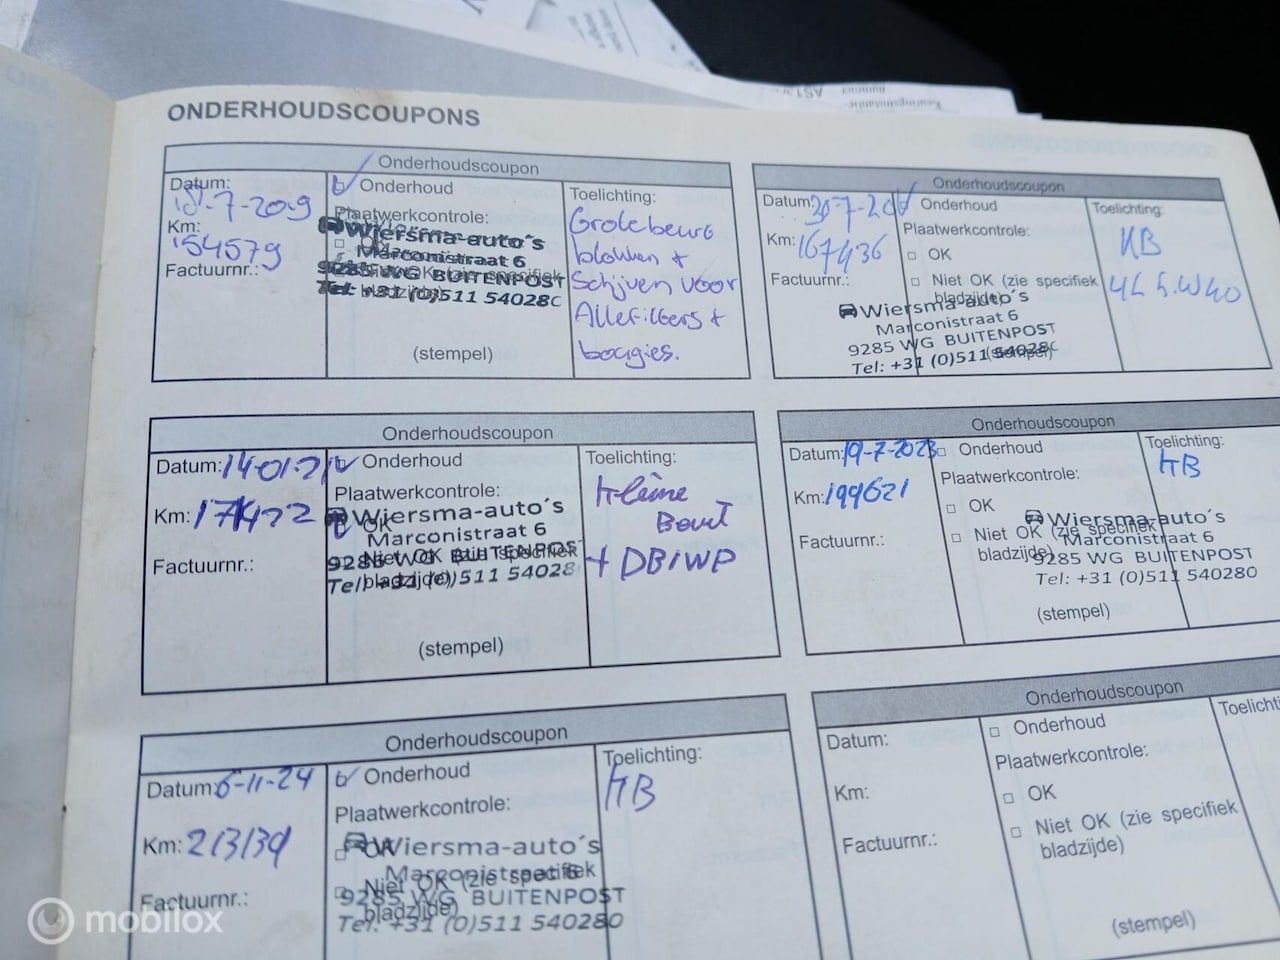 ONDERHOUDSCOUPONS
Onderhoudscoupon
Datum: 18-7-2019
Km: 154579
Factuurnr.:
Onderhoud
Plaatwerkcontrole:
OK
Niet OK (zie specifiek
bladzijde)
Wiersma-auto´s
Marconistraat 6
9285 WG BUITENPOST
Tel: +31 (0)511 54028
(stempel)
Toelichting:
Grote beurt
blokken +
Schijven voor
Alle filters +
bougies.
Onderhoudscoupon
Datum: 20-7-20
Km: 167436
Factuurnr.:
Onderhoud
Plaatwerkcontrole:
OK
Niet OK (zie specifiek
bladzijde)
Wiersma-auto´s
Marconistraat 6
9285 WG BUITENPOST
Tel: +31 (0)511 54028
(stempel)
Toelichting:
KB
4L 5W40
Onderhoudscoupon
Datum: 14-01-21
Km: 171422
Factuurnr.:
Onderhoud
Plaatwerkcontrole:
OK
Niet OK (zie specifiek
bladzijde)
Wiersma-auto´s
Marconistraat 6
9285 WG BUITENPOST
Tel: +31 (0)511 54028
(stempel)
Toelichting:
Kleine
Beurt
+ DB/WP
Onderhoudscoupon
Datum: 19-7-2023
Km: 199621
Factuurnr.:
Onderhoud
Plaatwerkcontrole:
OK
Niet OK (zie specifiek
bladzijde)
Wiersma-auto´s
Marconistraat 6
9285 WG BUITENPOST
Tel: +31 (0)511 540280
(stempel)
Toelichting:
KB
Onderhoudscoupon
Datum: 6-11-24
Km: 213139
Factuurnr.:
Onderhoud
Plaatwerkcontrole:
OK
Niet OK (zie specifiek
bladzijde)
Wiersma-auto´s
Marconistraat 6
9285 WG BUITENPOST
Tel: +31 (0)511 540280
Toelichting:
KB
Onderhoudscoupon
Datum:
Km:
Factuurnr.:
Onderhoud
Plaatwerkcontrole:
OK
Niet OK (zie specifiek
bladzijde)
(stempel)
Toelichti
mobilox